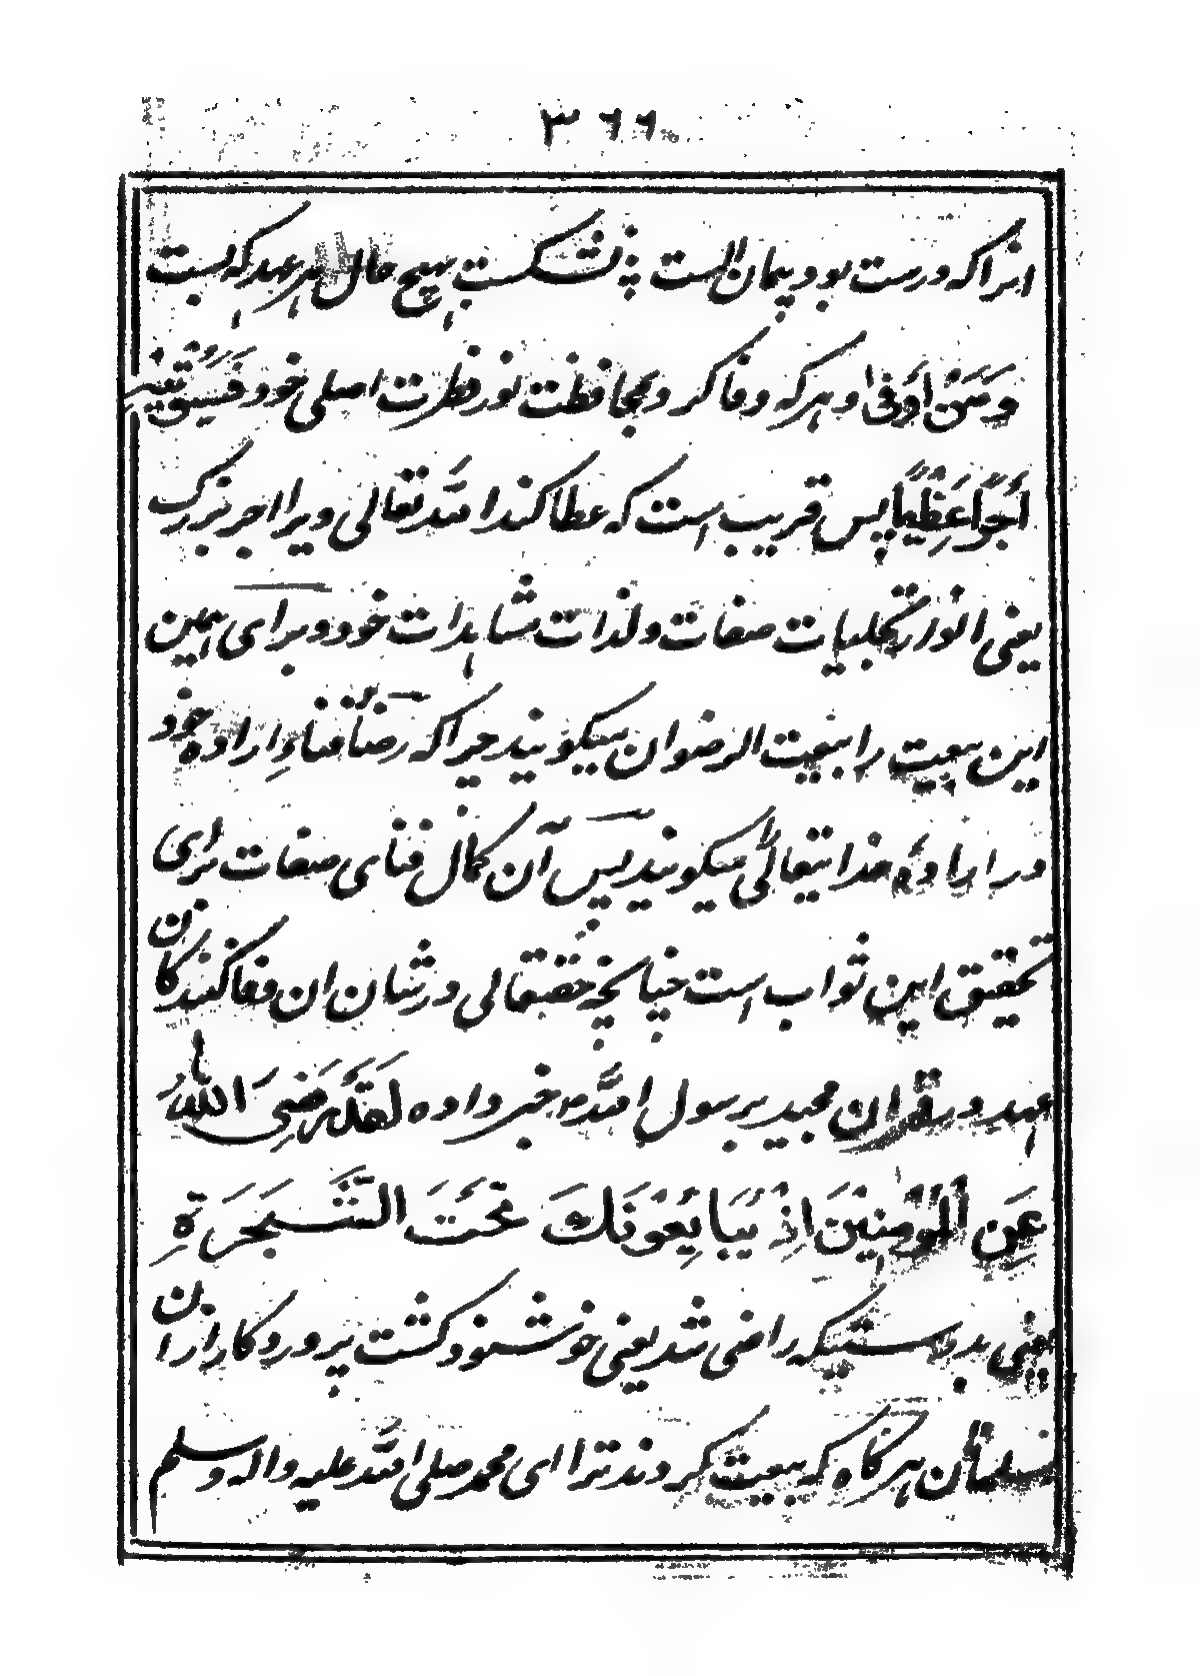 ٣٦٦
انرا که درست بود پیمان الست * نشکست بهیچ حال هر عهد که بست
وَمَنْ اَوْفٰی و هر که وفا کرد و بمحافظت نور فطرت اصلی خود فَسَیُؤْتِیْهِ
اَجْرًا عَظِیْمًا پس قریب است که عطا کند اللّٰه تعالی ویرا اجر بزرگ
یعنی انوار تجلیات صفات و لذات مشاهدات خود و برای همین
این بیعت را بیعت الرضوان میگویند چرا که رضا فناءِ ارادهٔ خود
در ارادهٔ خدا تعالٰی میگویند پس آن کمال فنای صفات برای
تحقیق این ثواب است چنانچه حقتعالی در شان ان وفا کنندکان
عهد در قران مجید برسول اللّٰه ص خبر داده لَقَدْ رَضِیَ اللّٰهُ
عَنِ الْمُؤْمِنِیْنَ اِذْ یُبَایِعُوْنَكَ تَحْتَ الشَّجَرَةِ
یعنی بدرستیکه راضی شد یعنی خوشنود کشت پروردکار ازان
مسلمانان هرکاه که بیعت کردند ترا ای محمد صلی اللّٰه علیه واله وسلم